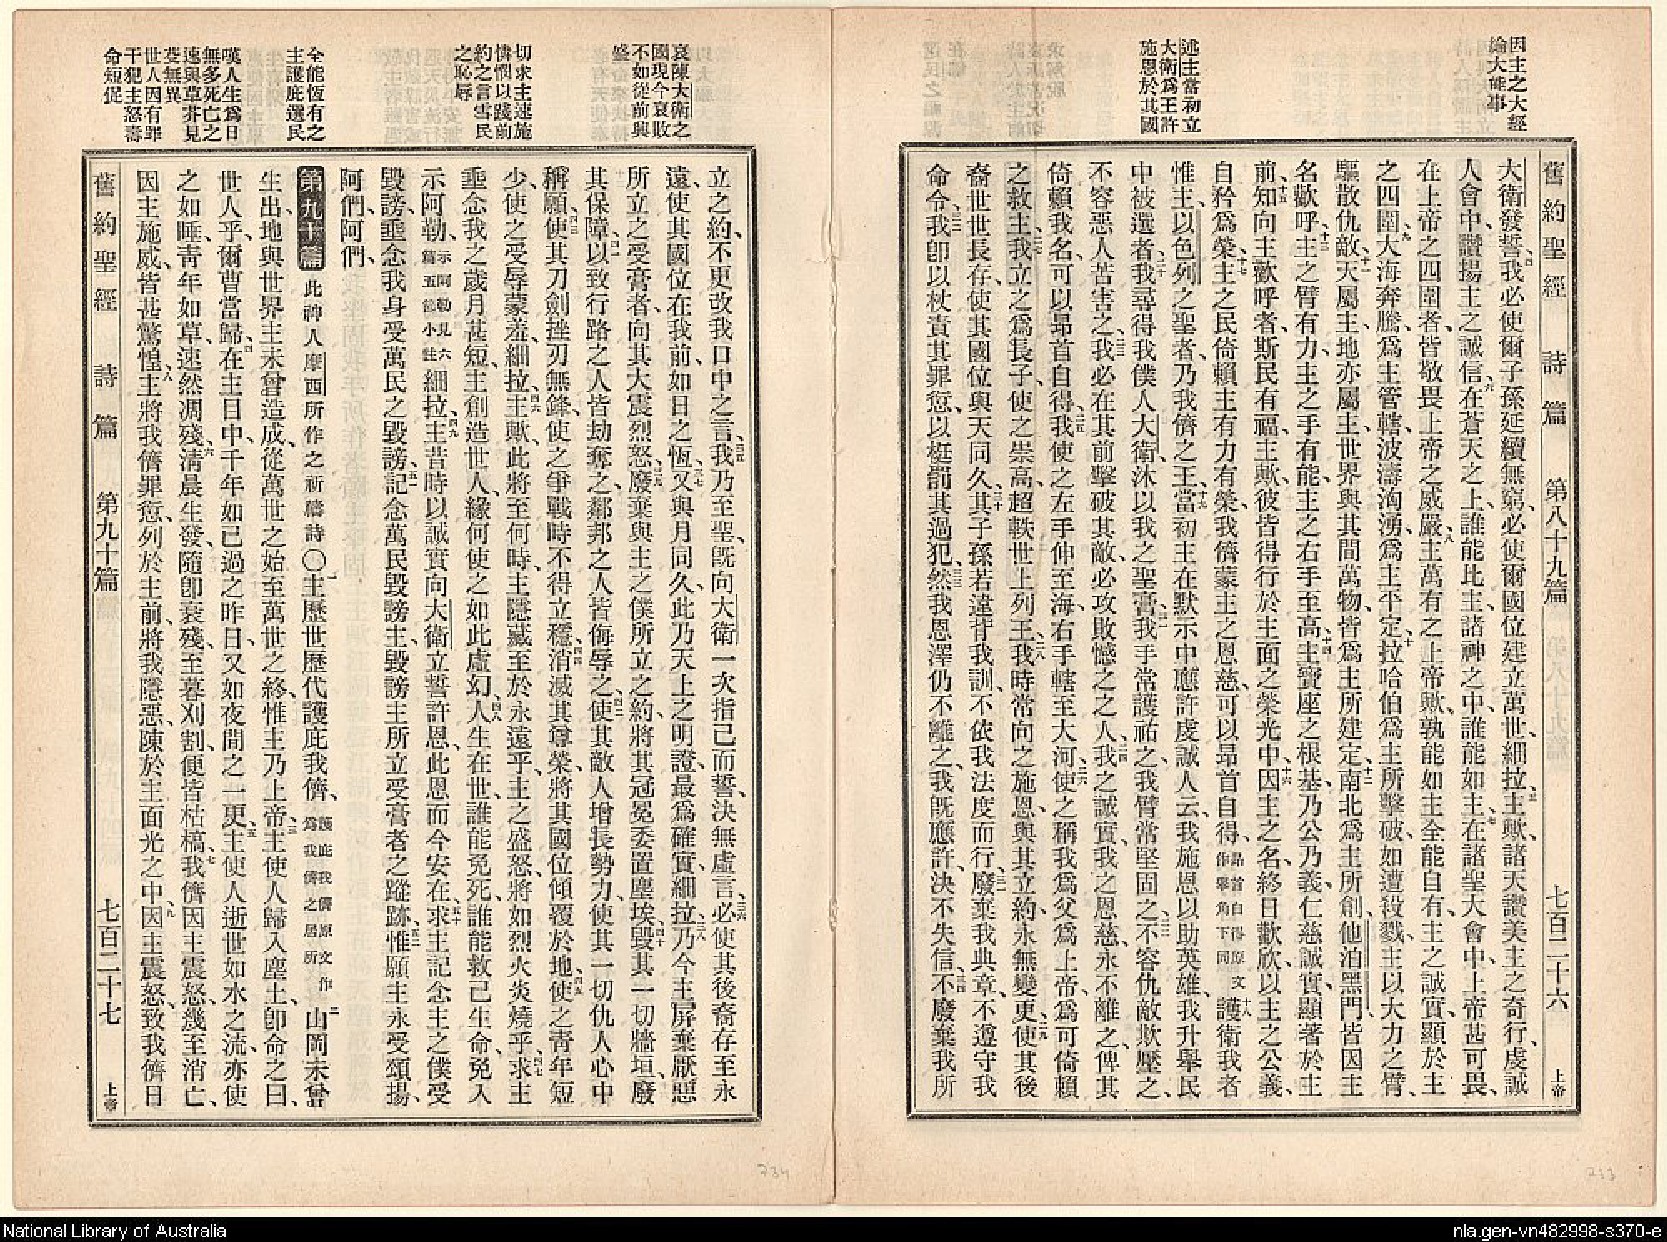 因主之大經
綸大能事
述主當初立
大衛爲王許
施恩於其國
舊約聖經 詩篇 第八十九篇 七百二十六 上帝
大衛發誓、四我必使爾子孫延續無窮、必使爾國位建立萬世、細拉五主歟、諸天讚美主之奇行、虔誠
人會中、讚揚主之誠信、六在蒼天之上、誰能比主、諸神之中、誰能如主、七在諸聖大會中、上帝甚可畏、
在上帝之四圍者、皆敬畏上帝之威嚴、八主萬有之上帝歟、孰能如主全能自有、主之誠實、顯於主
之四圍、九大海奔騰、爲主管轄、波濤洶湧、爲主平定、十拉哈伯爲主所擊破、如遭殺戮、主以大力之臂、
驅散仇敵、十一天屬主、地亦屬主、世界與其間萬物、皆爲主所建定、十二南北爲主所創、他泊黑門、皆因主
名歡呼、十三主之臂有力、主之手有能、主之右手至高、十四主寶座之根基、乃公乃義、仁慈誠實、顯著於主
前、十五知向主歡呼者、斯民有福、主歟、彼皆得行於主面之榮光中、十六因主之名、終日歡欣、以主之公義、
自矜爲榮、十七主之民倚賴主有力有榮、我儕蒙主之恩慈、可以昂首自得、昂首自得原文作舉角下同十八護衛我者
惟主、以色列之聖者、乃我儕之王、十九當初主在默示中、應許虔誠人云、我施恩以助英雄、我升舉民
中被選者、二十我尋得我僕人大衛、沐以我之聖膏、二一我手常護祐之、我臂常堅固之、二二不容仇敵欺壓之、
不容惡人苦害之、二三我必在其前擊破其敵、必攻敗憾之之人、二四我之誠實、我之恩慈、永不離之、俾其
倚賴我名、可以昂首自得、二五我使之左手伸至海、右手轄至大河、二六使之稱我爲父、爲上帝、爲可倚賴
之救主、二七我立之爲長子、使之崇高、超軼世上列王、二八我時常向之施恩、與其立約、永無變更、二九使其後
裔世世長存、使其國位與天同久、三十其子孫若違背我訓、不依我法度而行、三一廢棄我典章、不遵守我
命令、三二我卽以杖責其罪愆、以梃罰其過犯、三三然我恩澤仍不離之、我旣應許、決不失信、三四不廢棄我所
哀陳大衛之
國現今衰敗
不如從前興
盛
切求主速施
憐憫以踐前
約之言雪民
之恥辱
全能恆有之
主護庇選民
嘆人生爲日
無多死亡之
速與草芥見
芟無異
世人因有罪
干犯主怒壽
命短促
立之約、不更改我口中之言、三五我乃至聖、旣向大衛一次指己而誓、決無虛言、三六必使其後裔存至永
遠、使其國位在我前、如日之恆、三七又與月同久、此乃天上之明證、最爲確實、細拉三八乃今主屏棄厭惡
所立之受膏者、向其大震烈怒、三九廢棄與主之僕所立之約、將其冠冕委置塵埃、四十毀其一切牆垣、廢
其保障、四一以致行路之人皆劫奪之、鄰邦之人皆侮辱之、四二使其敵人增長勢力、使其一切仇人心中
稱願、四三使其刀劍挫刃無鋒、使之爭戰時不得立穩、四四消滅其尊榮、將其國位傾覆於地、四五使之靑年短
少、使之受辱蒙羞、細拉四六主歟、此將至何時、主隱藏至於永遠乎、主之盛怒、將如烈火炎燒乎、四七求主
垂念我之歲月甚短、主創造世人、緣何使之如此虛幻、四八人生在世、誰能免死、誰能救己生命、免入
示阿勒、示阿勒見六篇五節小註細拉四九主昔時以誠實向大衛立誓許恩、此恩而今安在、五十求主記念主之僕受
毀謗、垂念我身受萬民之毀謗、五一記念萬民毀謗主、毀謗主所立受膏者之蹤跡、五二惟願主永受頌揚、
阿們、阿們、
第九十篇 此神人摩西所作之祈禱詩〇一主歷世歷代護庇我儕、護庇我儕原文作爲我儕之居所二山岡未曾
生出、地與世界主未曾造成、從萬世之始、至萬世之終、惟主乃上帝、三主使人歸入塵土、卽命之曰、
世人乎、爾曹當歸、四在主目中、千年如已過之昨日、又如夜間之一更、五主使人逝世如水之流、亦使
之如睡、靑年如草、速然凋殘、六淸晨生發、隨卽衰殘、至暮刈割、便皆枯槁、七我儕因主震怒、幾至消亡、
因主施威、皆甚驚惶、八主將我儕罪愆、列於主前、將我隱惡、陳於主面光之中、九因主震怒、致我儕日
舊約聖經 詩篇 第九十篇 七百二十七 上帝
733
734
National Library of Australia
nla.gen-vn482998-s370-e